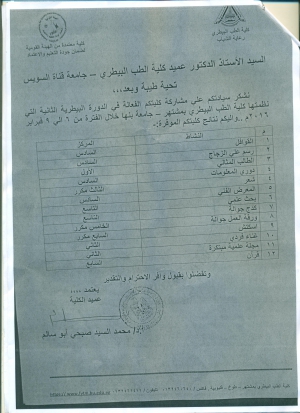 كلية الطب البيطرى
رعاية الشباب
كلية معتمدة من الهيئة القومية
لضمان جودة التعليم والاعتماد
السيد الأستاذ الدكتور عميد كلية الطب البيطري – جامعة قناة السويس
تحية طيبة وبعد,,,
نشكر سيادتكم علي مشاركة كليتكم الفعالة في الدورة البيطرية الثانية التي
نظمتها كلية الطب البيطري بمشتهر – جامعة بنها خلال الفترة من ٦ الي ٩ فبراير
٢٠١٦م ..واليكم نتائج كليتكم الموقرة:
م النشاط المركز
١ القوافل السادس
٢ رسم علي الزجاج السادس
٣ الطالب المثالي السادس
٤ دوري المعلومات الأول
٥ شعر السادس
٦ المعرض الفني الثالث مكرر
٧ بحث علمي السادس
٨ نتاج جوالة التاسع
٩ ورقة العمل جوالة التاسع
١٠ اسكتش الخامس مكرر
١١ غناء فردي السابع مكرر
١٢ مجلة علمية مبتكرة الثاني
قرآن الثاني
وتفضلوا بقبول وافر الاحترام والتقدير
يعتمد ,,,,
عميد الكلية
أ.د/ محمد السيد صبحي أبو سالم